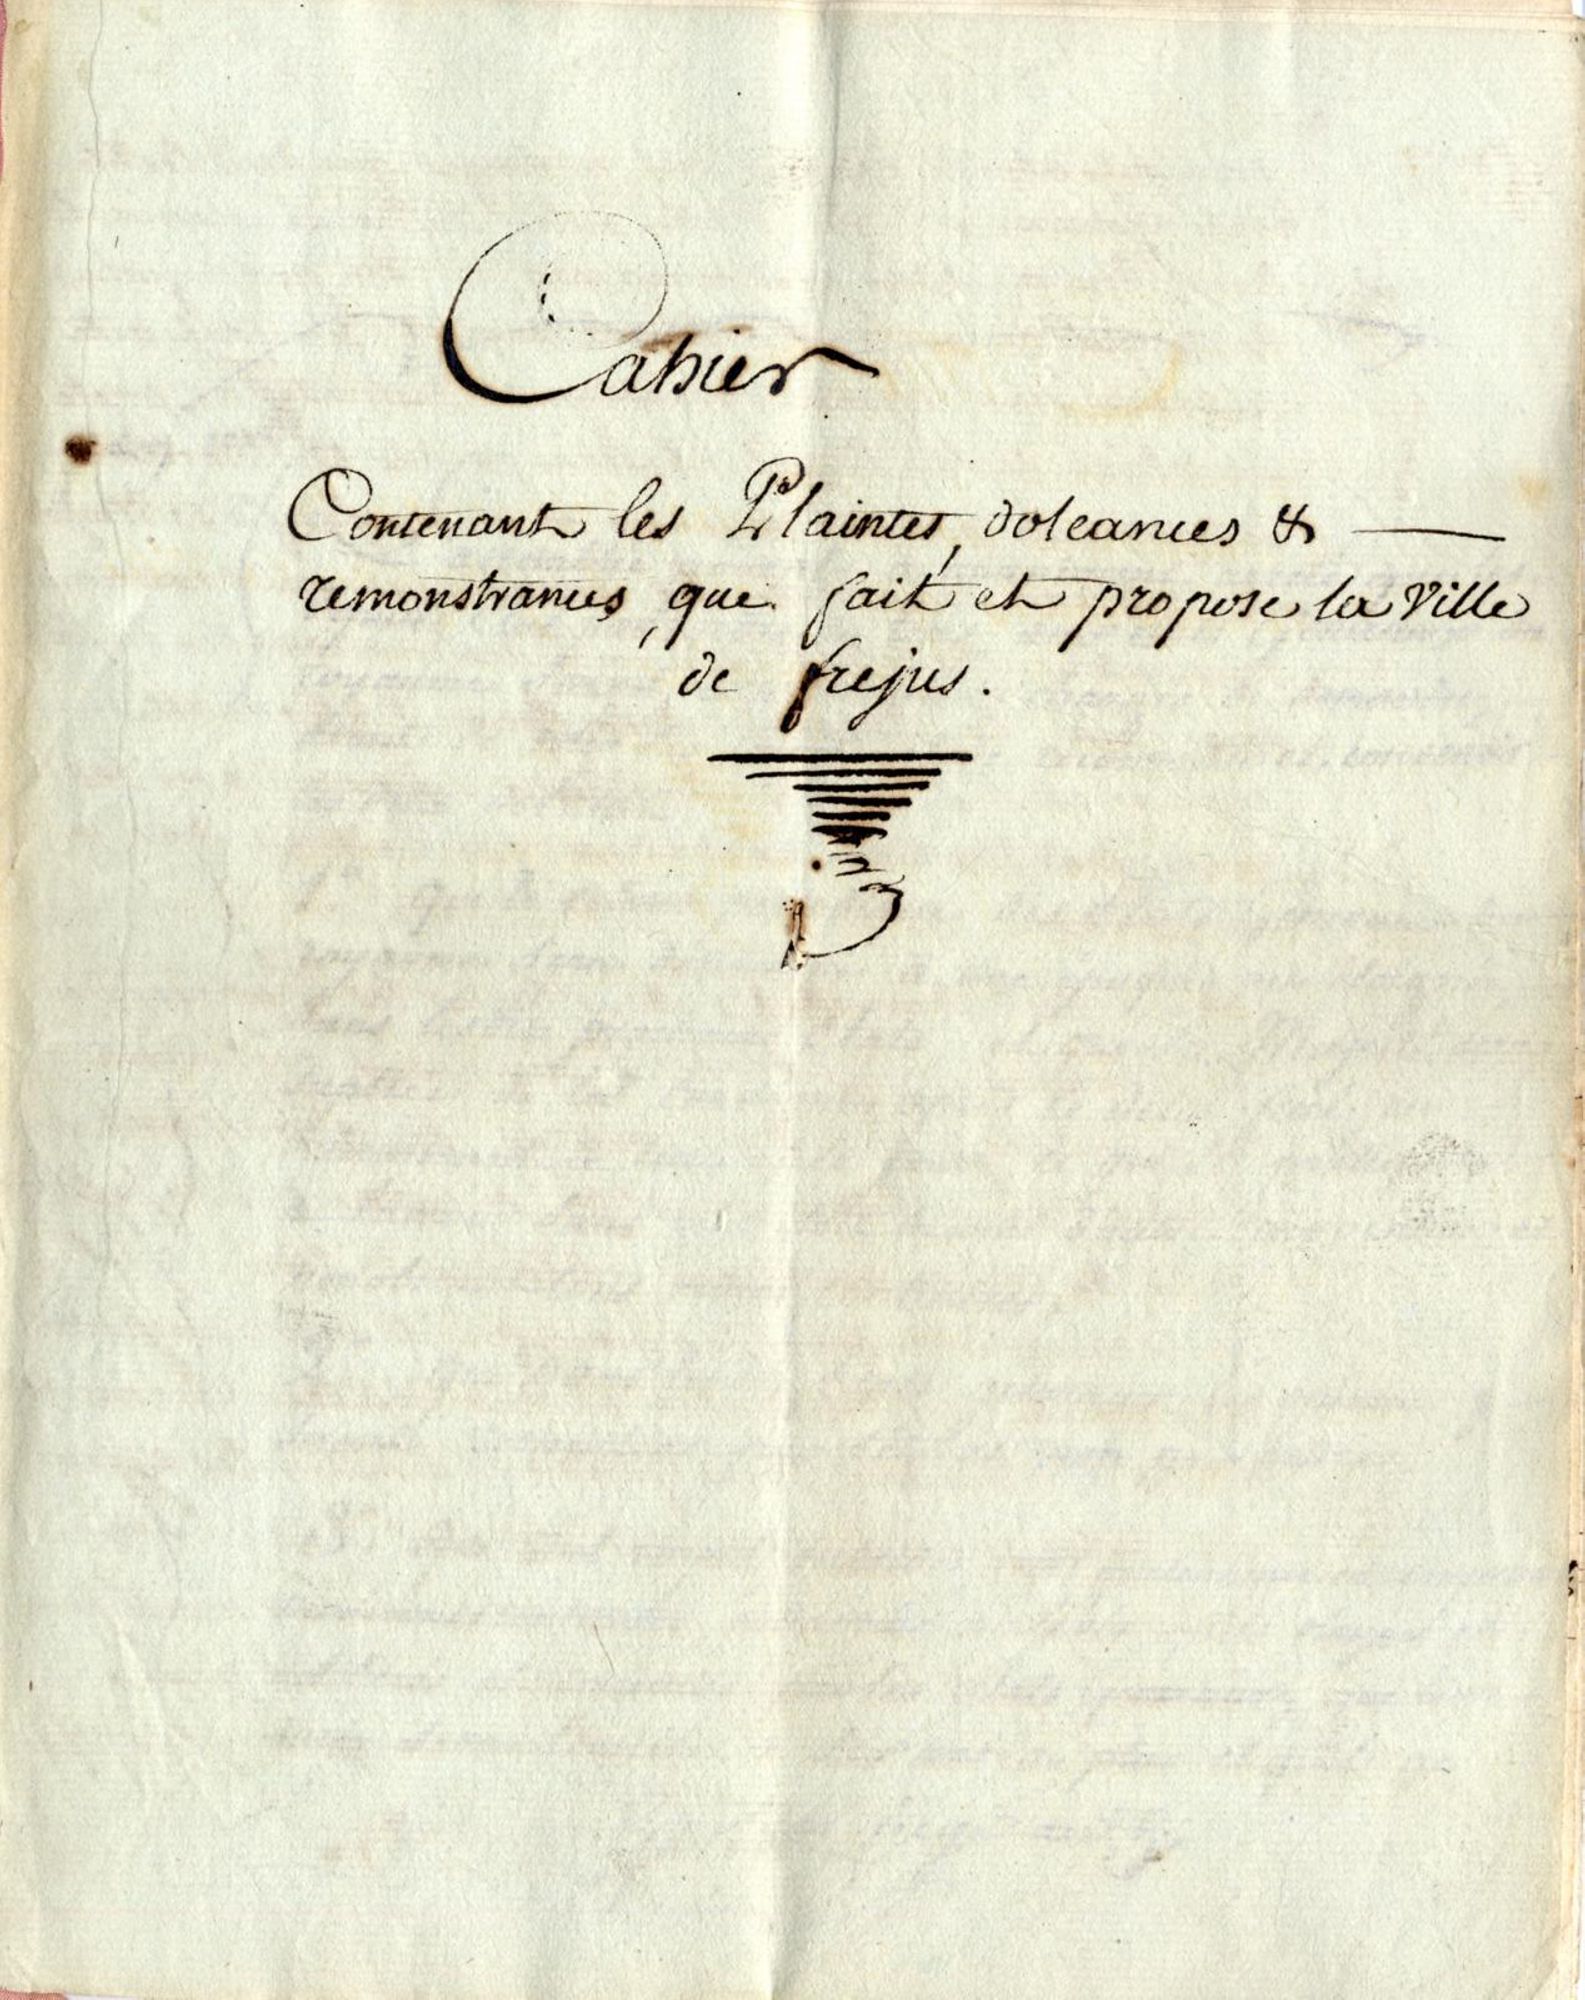 Cahier
Contenant les Plaintes, doleances &
remonstrances, que fait et propose la Ville
de frejus.